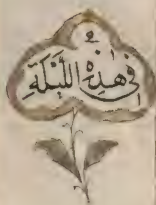 فِي هٰذِهِ اللَّيْلَةِ